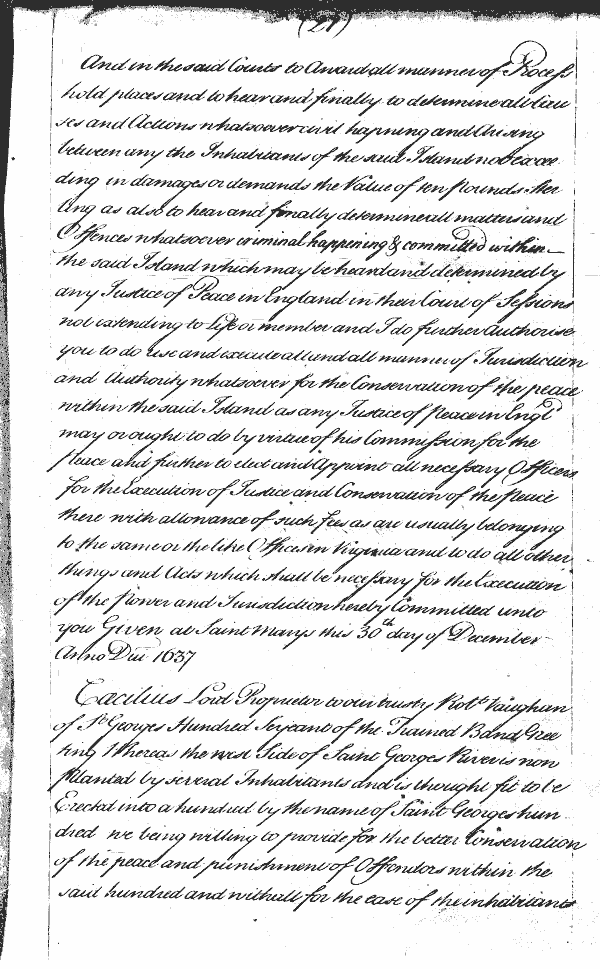 (27)
And in the said Courts to Award all manner of Process
hold places and to hear and finally to determine all Cau
ses and Actions whatsoever civil hapning and Arising
between any the Inhabitants of the said Island not excee
ding in damages or demands the Value of ten pounds ster
ling as also to hear and finally determine all matters and
Offences whatsoever criminal happening & committed within
the said Island which may be heard and determined by
any Justice of Peace in England in their Court of Sessions
not extending to Life or member and I do further authorise
you to do use and execute all and all manner of Jurisdiction
and Authority whatsoever for the Conservation of the peace
within the said Island as any Justice of peace in Engld
may or ought to do by virtue of his Commission for the
peace and further to elect and Appoint all necessary Officers
for the Execution of Justice and Conservation of the peace
there with allowance of such fees as are usually belonging
to the same or the like Offices in Virginia and to do all other
things and Acts which shall be necessary for the Execution
of the power and Jurisdiction hereby Committed unto
you Given at Saint Marys this 30th day of December
Anno Dni 1637
Cacilius Lord Proprietor to our trusty Robt Vaughan
of St Georges Hundred Serjeant of the Trained Band Gree
ting Whereas the west Side of Saint Georges River is now
planted by several Inhabitants and is thought fit to be
Erected into a hundred by the name of Saint Georges hun
dred we being willing to provide for the better Conservation
of the peace and punishment of Offendors within the
said hundred and withall for the ease of the inhabitants